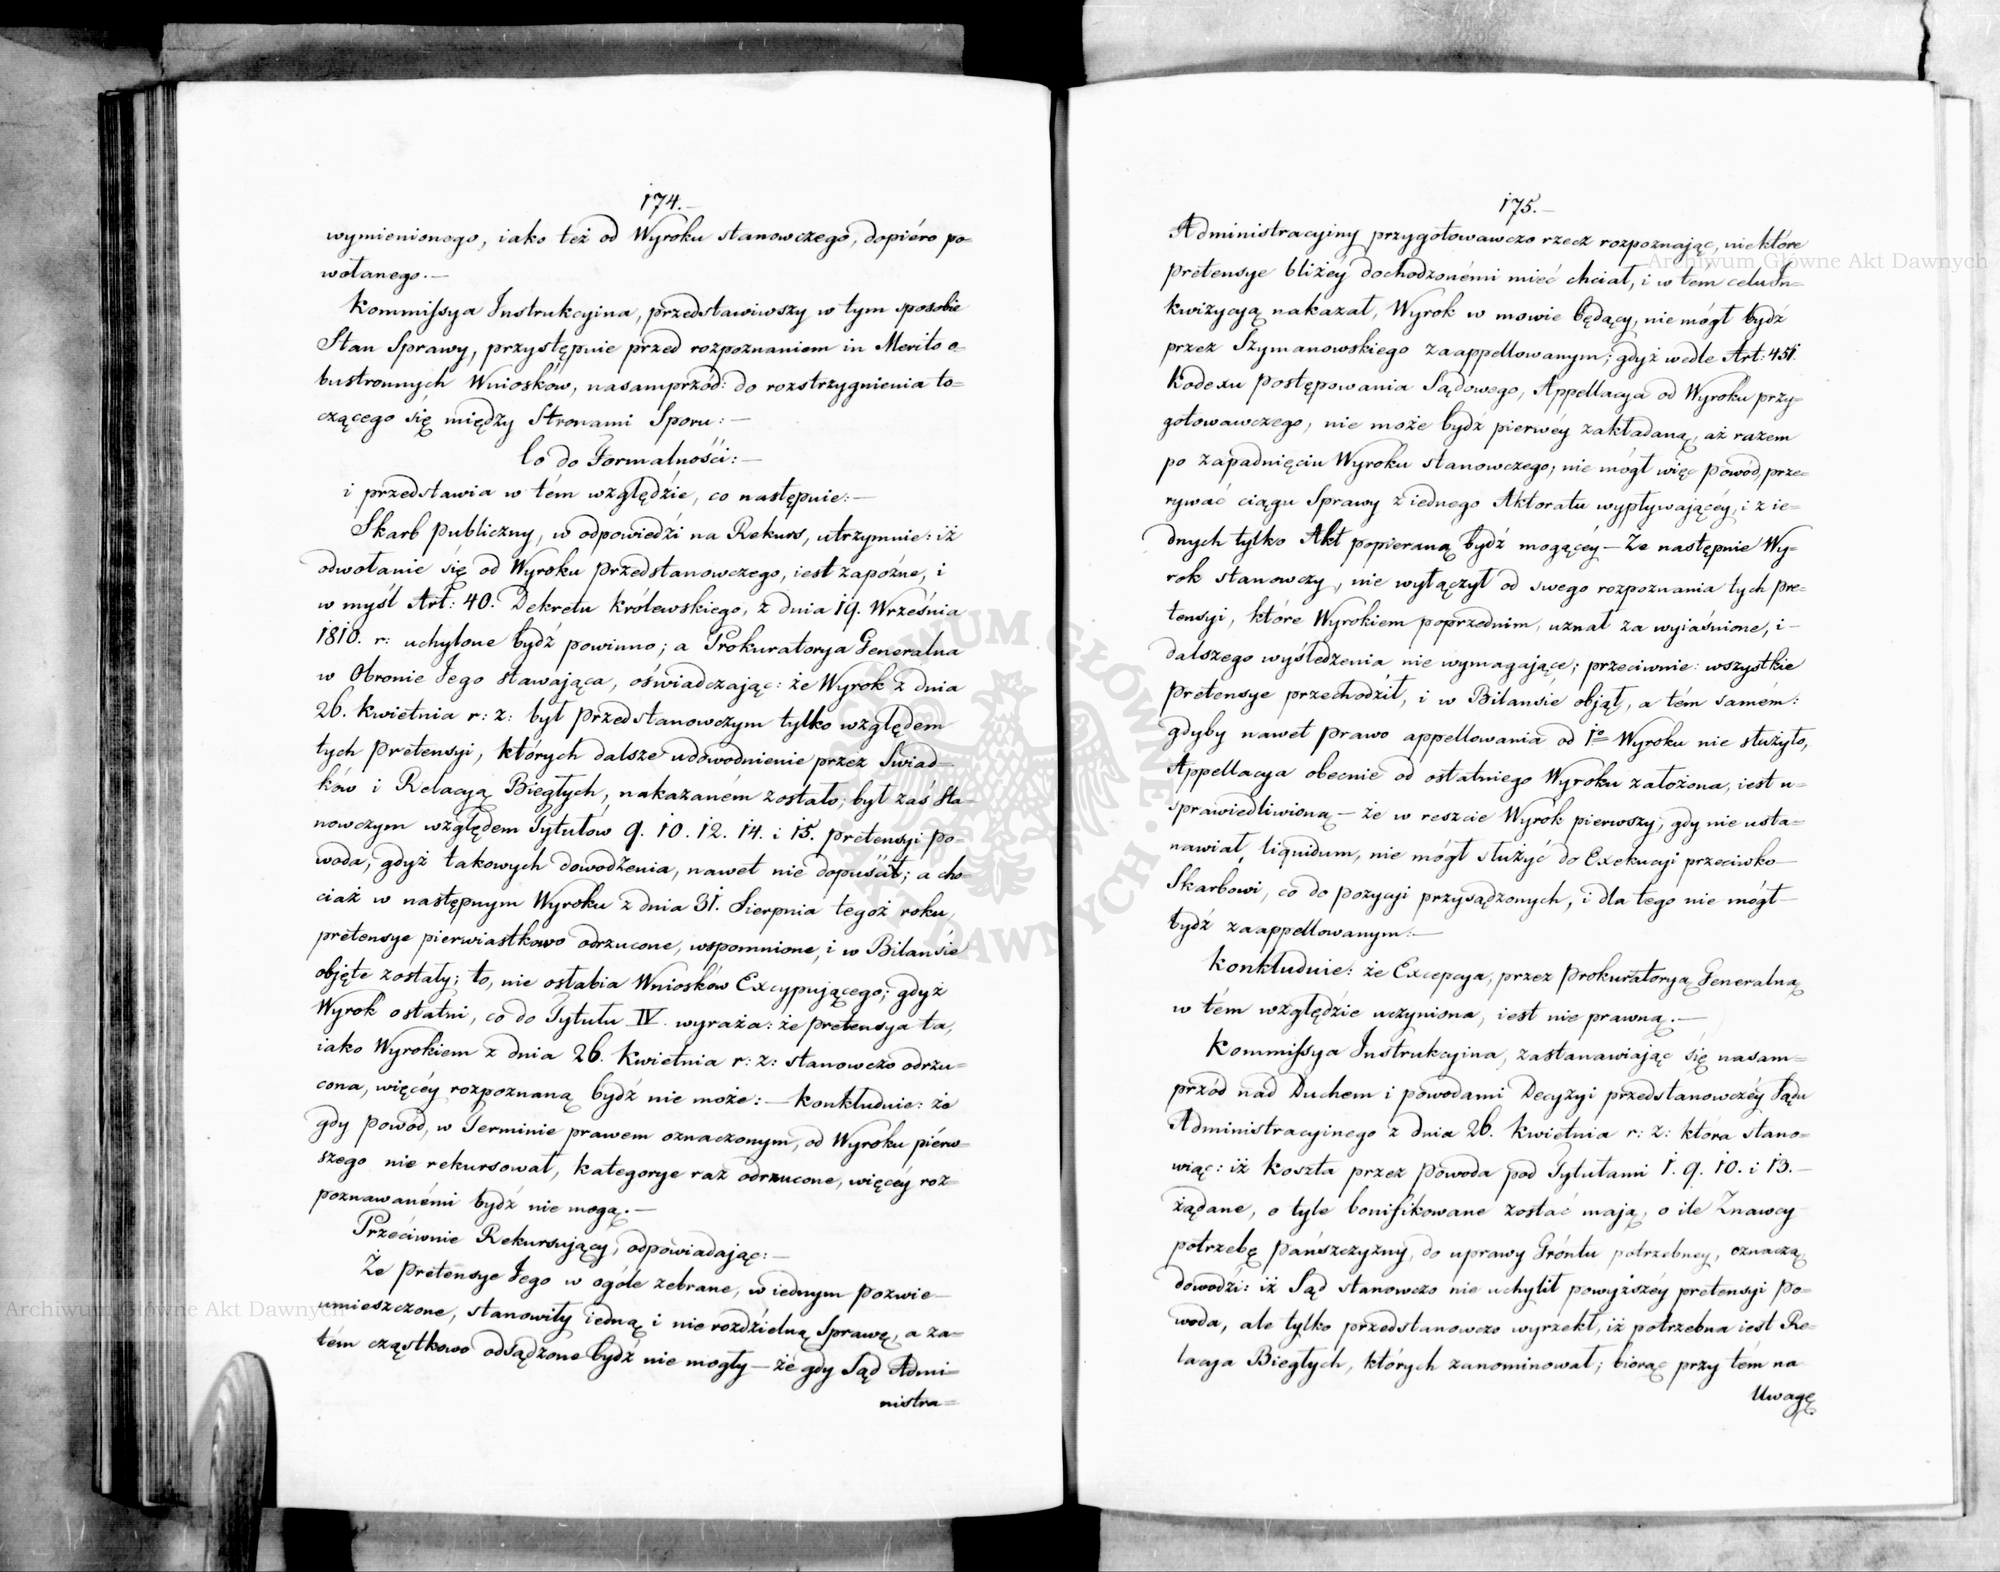 174.–
wymienionego, iako też od Wyroku stanowczego, dopiéro po=
wołanego.–
Kommissya Instrukcyina, przedstawiwszy w tym sposobie
Stan Sprawy, przystępuie przed rozpoznaniem in Merito o=
bustronnych Wniosków, nasamprzód: do rozstrzygnienia to=
czącego się między Stronami Sporu:–
Co do Formalności:–
i przedstawia w tém względzie, co następuie:–
Skarb publiczny, w odpowiedzi na Rekurs, utrzymuie: iż
odwołanie się od Wyroku przedstanowczego, iest zapóźne, i
w myśl Art: 40. Dekretu Królewskiego, z dnia 19. Września
1810. r: uchylone bydź powinno; a Prokuratorya Generalna
w Obronie Jego stawaiąca, oświadczając: że Wyrok z dnia
26. Kwietnia r: z: był przedstanowczym tylko względem
tych pretensyi, których dalsze udowodnienie przez Świad=
ków i Relacyą Biegłych, nakazaném zostało; był zaś Sta=
nowczym względem Tytułów 9. 10. 12. 14. i 15. pretensyi Po=
woda, gdyż takowych dowodzenia, nawet nie dopuścił; a cho=
ciaż w następnym Wyroku z dnia 31. Sierpnia tegoż roku,
pretensye pierwiastkowo odrzucone, wspomnione, i w Bilansie
objęte zostały; to, nie osłabia Wniosków Excypującego; gdyż
Wyrok ostatni, co do Tytułu IV. wyraża: że pretensya ta,
iako Wyrokiem z dnia 26. Kwietnia r: z: stanowczo odrzu=
cona, więcéy rozpoznaną bydź nie może:– Konkluduie: że
gdy Powód, w Terminie prawem oznaczonym, od Wyroku pierw=
szego nie rekursował, kategorye raz odrzucone, więcéy roz=
poznawanémi bydź nie mogą.–
Przeciwnie Rekursujący, odpowiadając:–
Że pretensye Jego w ogóle zebrane, w iednym pozwie
umieszczone, stanowiły iedną i nierozdzielną Sprawę, a za=
tém cząstkowo odsądzone bydź nie mogły – że gdy Sąd Admi=
nistra=
175.–
Administracyiny przygotowawczo rzecz rozpoznając, niektóre
pretensye bliżéy dochodzonémi mieć chciał, i w tém celu In=
kwizycyą nakazał, Wyrok w mowie będący, nie mógł bydź
przez Szymanowskiego zaappellowanym; gdyż wedle Art: 451.
Kodexu Postępowania Sądowego, Appellacya od Wyroku przy=
gotowawczego, nie może bydź pierwéy zakładaną, aż razem
po zapadnięciu Wyroku stanowczego; nie mógł więc Powód, prze=
rywać ciągu Sprawy z iednego Aktoratu wypływającéy, i z ie=
dnych tylko Akt popieraną bydź mogącéy – Że następnie Wy=
rok stanowczy, nie wyłączył od swego rozpoznania tych pre=
tensyi, które Wyrokiem poprzednim, uznał za wyiaśnione, i –
dalszego wyśledzenia nie wymagające; przeciwnie: wszystkie
pretensye przechodził, i w Bilansie objął, a tém samém:
gdyby nawet prawo appellowania od 1º Wyroku nie służyło,
Appellacya obecnie od ostatniego Wyroku założona, iest u=
sprawiedliwioną – że w reszcie Wyrok pierwszy, gdy nie usta=
nawiał liquidum, nie mógł służyć do Exekucyi przeciwko
Skarbowi, co do pozycyi przysądzonych, i dla tego nie mógł
bydź zaappellowanym:–
Konkluduie: że Excepcya, przez Prokuratoryą Generalną
w tém względzie uczyniona, iest nie prawną.–
Kommissya Instrukcyina, zastanawiając się nasam=
przód nad Duchem i powodami Decyzyi przedstanowczéy Sądu
Administracyinego z dnia 26. Kwietnia r: z: która stano=
wiąc: iż koszta przez Powoda pod Tytułami 1. 9. 10. i 13.–
żądane, o tyle bonifikowane zostać mają, o ile Znawcy
potrzebę pańszczyzny, do uprawy Gróntu potrzebney, oznaczą
dowodzi: iż Sąd stanowczo nie uchylił powyższéy pretensyi Po=
woda, ale tylko przedstanowczo wyrzekł, iż potrzebna iest Re=
lacya Biegłych, których zanominował; biorąc przy tém na
Uwagę
Archiwum Główne Akt Dawnych
Archiwum Główne Akt Dawnych
ARCHIWUM GŁÓWNE AKT DAWNYCH